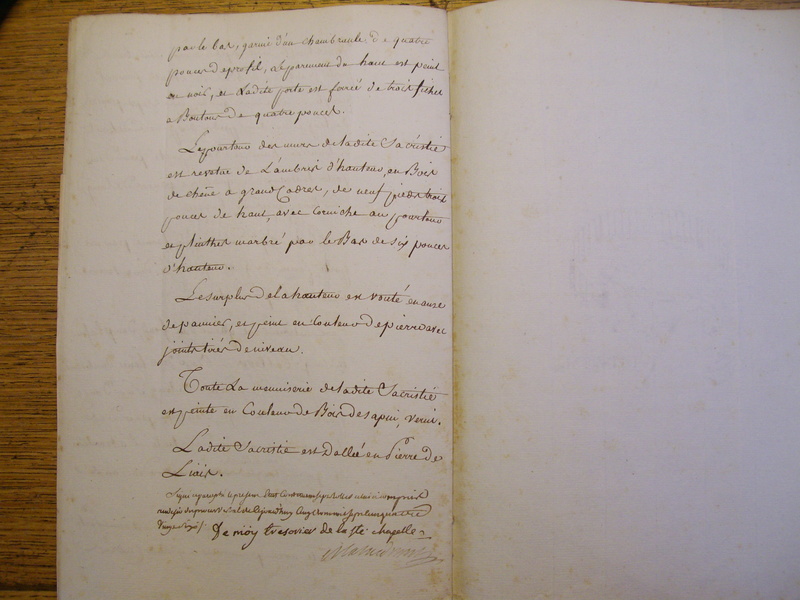 par le bas, garnie d'un chambranle de quatre
pouces de profil, le parement du haut est peint
en noir, et Ladite porte est ferrée de trois fiches
a Boutons de quatre pouces.
Le pourtour des murs de ladite Sacristie
est revetue de Lambris d'hauteur, en Bois
de chêne a grand Cadres, de neuf pieds trois
pouces de haut, avec Corniche au pourtour
et plinthes marbré par le Bas de six pouces
d'hauteur.
Le surplus de la hauteur est vouté en anse
de pannier, et peint en Couleur de pierre avec
joints tirés de niveau.
Toute La menuiserie de ladite Sacristie
est peinte en Couleur de Bois de sapin, verni.
Ladite Sacristie est Dallée en Pierre de
Liais.
le présent Etat
De moÿ tresorier de la Ste chapelle